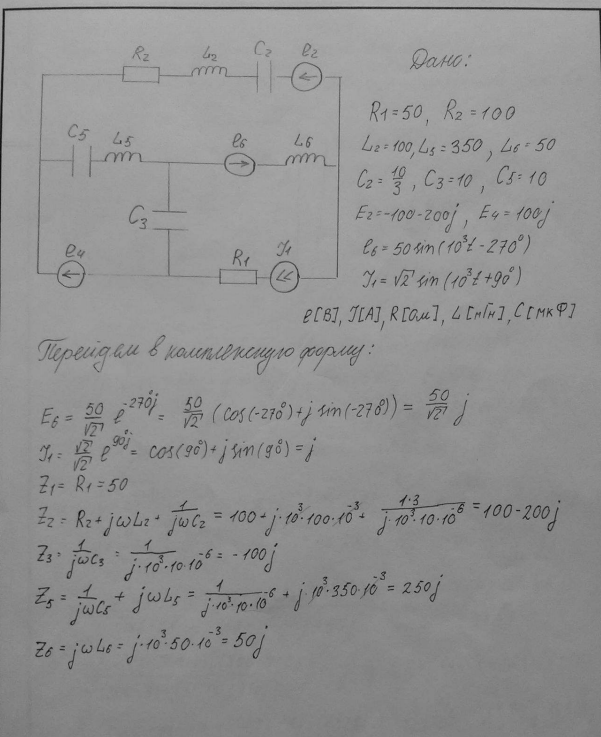 R2 L2 C2 e2
C5 L5 e6 L6
C3
e4 R1 J1
Дано:
R1=50, R2=100
L2=100, L5=350, L6=50
C2=10/3, C3=10, C5=10
E2=-100-200j, E4=100j
e6=50sin(10³t-270°)
J1=√2 sin(10³t+90°)
e[В], J[A], R[Ом], L[мГн], C[мкФ]
Перейдем в комплексную форму:
E6 = 50/√2 e^-270°j = 50/√2 (cos(-270°)+j sin(-270°)) = 50/√2 j
J1 = √2/√2 e^90°j = cos(90°)+j sin(90°) = j
Z1 = R1 = 50
Z2 = R2+jωL2 + 1/jωC2 = 100+j·10³·100·10⁻³ + 1·3/j·10³·10·10⁻⁶ = 100-200j
Z3 = 1/jωC3 = 1/j·10³·10·10⁻⁶ = -100j
Z5 = 1/jωC5 + jωL5 = 1/j·10³·10·10⁻⁶ + j·10³·350·10⁻³ = 250j
Z6 = jωL6 = j·10³·50·10⁻³ = 50j